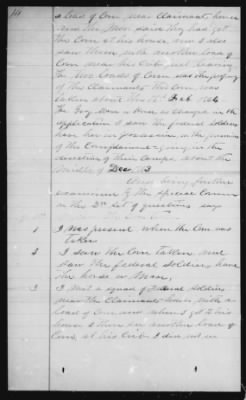 a load of Corn near Claimants house
and the Men said they had got
this Corn there then I also
saw them with another load of
Corn near his Crib just leaving
The two loads of Corn was the property
of the Claimant the Corn was
taken about the 1st Feb 1864
The Grey Mare or Horse as charged in the
application I saw the Federal Soldiers
have her in possession in the
of the Complainant going in the
direction of their Camps about the
Middle of Dec 63
being further
examined by the Special Comr
in the 2nd Set of questions says
1 I was present when the Corn was
taken
2 I saw the Corn taken and
saw the federal Soldiers have
the horse or Mare,
3 I met a squad of federal Soldiers
near the Claimants house with a
load of Corn and when I got to his
house I then saw another load of
Corn, at his Crib I did not see